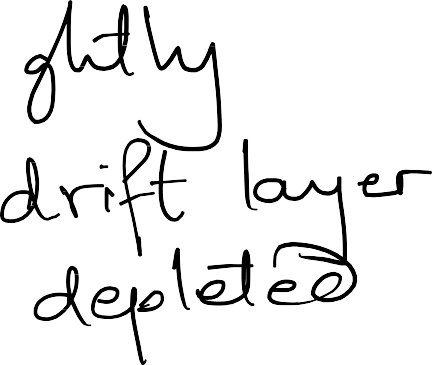 ghtly
drift layer
depleted